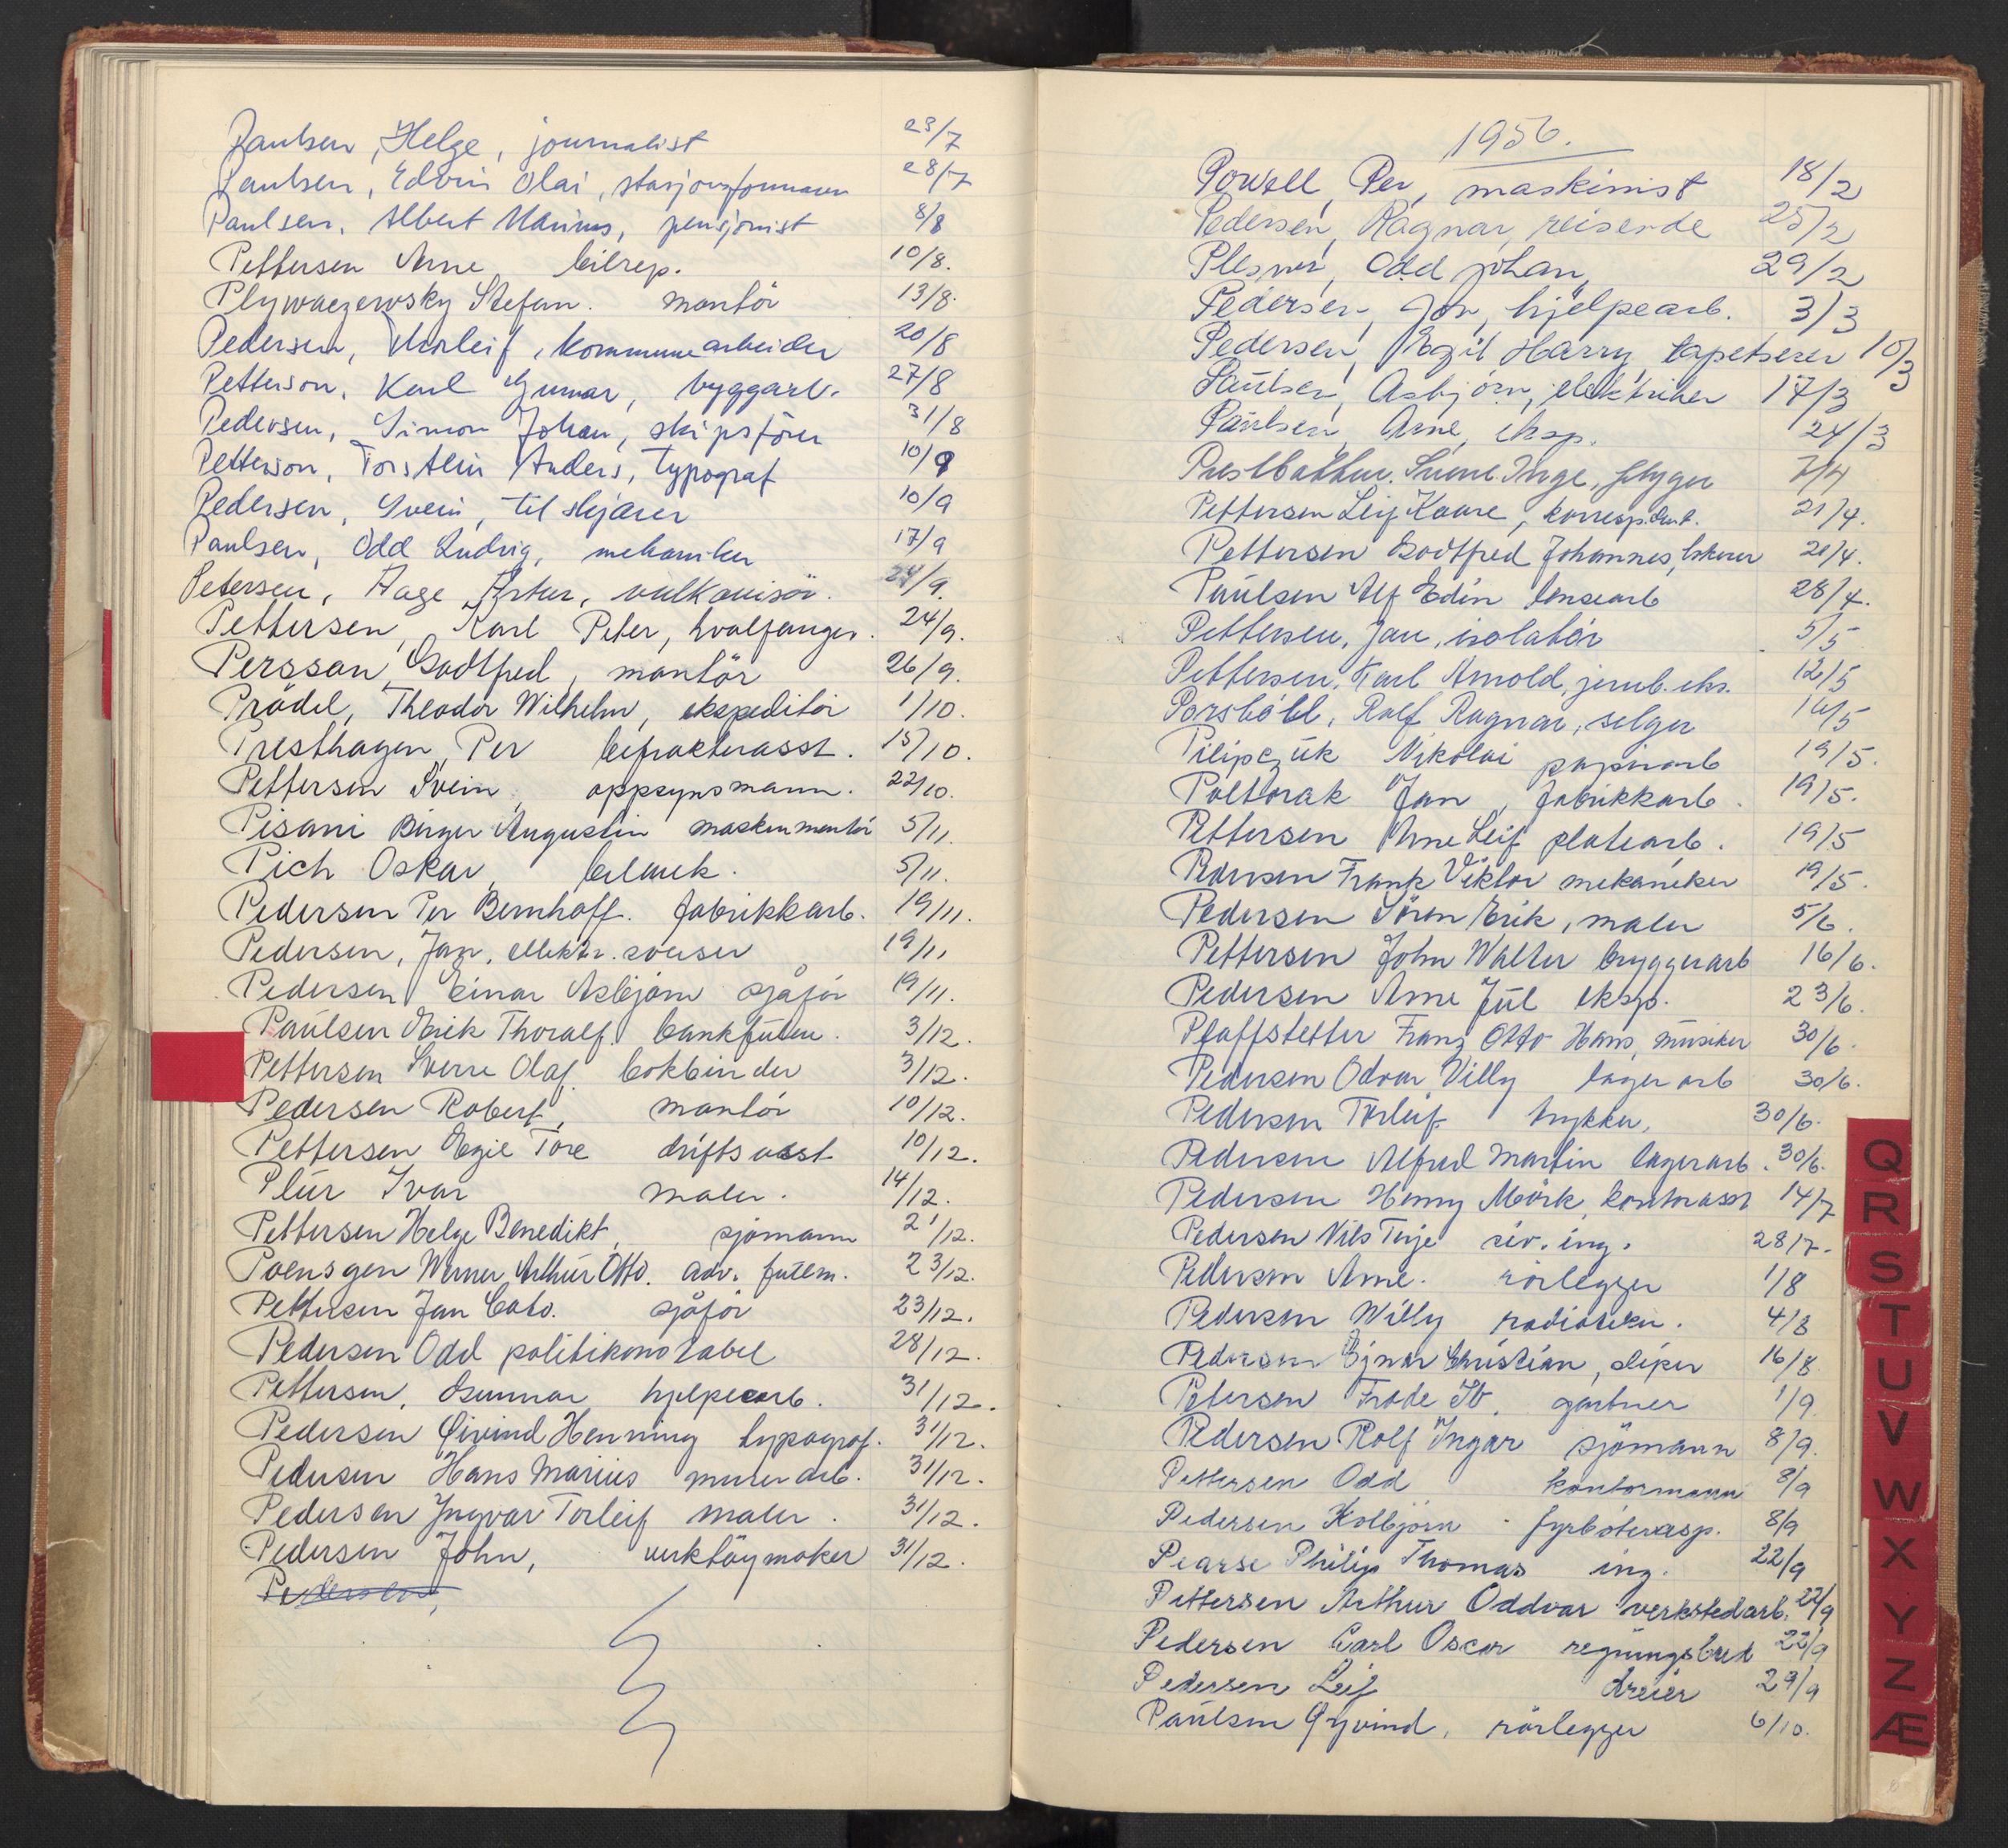 Paulsen, Helge, journalist 23/7
Paulsen, Edvin Olai, stasjonsformann 28/7
Paulsen, Albert Marius, pensjonist 8/8
Pettersen Arne bilrep. 10/8.
Plywaczewsky Stefan. montör 13/8.
Pedersen, Thorleif, kommunearbeider 20/8
Petterson, Karl Gunnar, byggarb. 27/8
Pedersen, Simon Johan, skipsförer 31/8
Petterson, Torstein Anders, typograf 10/9
Pedersen, Svein, tilskjærer 10/9
Paulsen, Odd Ludvig, mekaniker 17/9
Petersen, Aage Artur, vulkanisör. 24/9.
Pettersen, Karl Peter, hvalfanger. 24/9.
Persson, Godtfred, montör 26/9.
Prödel, Theodor Wilhelm, ekspeditör 1/10.
Presthagen, Per befrakterasst. 15/10.
Pettersen Svein, oppsynsmann. 22/10.
Pisani Birger Augustin maskinmontör 5/11.
Pich Oskar, bilmek. 5/11.
Pedersen Per Bernhoff. fabrikkarb. 19/11.
Pedersen, Jan, elektr. sveiser 19/11
Pedersen Einar Asbjørn sjåför 19/11.
Paulsen Erik Thoralf. bankfullm. 3/12.
Pettersen Sverre Olaf. bokbinder 3/12.
Pedersen Robert, montör 10/12.
Pettersen Egil Tore driftsasst 10/12.
Plür Ivar maler. 14/12.
Pettersen Helge Benedikt, sjömann 21/12.
Poensgen Werner Arthur Otto. adv. fullm. 23/12.
Pettersen Jan Cato. sjåför 23/12.
Pedersen Odd politikonstabel 28/12.
Pettersen, Gunnar hjelpearb. 31/12.
Pedersen Øivind Henning typograf. 31/12.
Pedersen Hans Marius murerarb. 31/12.
Pedersen Yngvar Torleif maler. 31/12.
Pedersen John, verktöymaker 31/12.
Pedersen,
1956.
Powell, Per, maskinist 18/2
Pedersen, Ragnar, reisende 25/2
Plesner, Odd Johan, 29/2
Pedersen, Jon, hjelpearb. 3/3
Pedersen, Egil Harry, tapetserer 10/3
Paulsen, Asbjörn, elektriker 17/3
Paulsen, Arne, eksp. 24/3
Prestbakken. Sverre Inge, flyger 7/4
Pettersen Leif Kaare, korrespdent. 21/4.
Pettersen Godtfred Johannes, 21/4.
Paulsen Alf Edin lensearb 28/4.
Pettersen, Jan, isolatör 5/5
Pettersen, Karl Arnold, jernb. eks. 12/5
Porsböll, Rolf Ragnar, selger 16/5
Pilipczuk Nikolai papirarb 19/5.
Poltorak Jan, fabrikkarb. 19/5.
Pettersen Arne Leif platearb. 19/5
Pedersen Frank Viktor mekaniker 19/5.
Pedersen Sören Erik, maler 5/6.
Pettersen John Walter bryggerarb 16/6.
Pedersen Arne Jul eksp. 23/6.
Pfaffstetter Franz Otto Hans, musiker 30/6.
Pedersen Odvar Villy lagerarb 30/6.
Pedersen Torleif trykker, 30/6.
Pedersen Alfred Martin lagerarb. 30/6.
Pedersen Henry Mörk, kontorasst 14/7
Pedersen Nils Terje siv. ing. 28/7.
Pedersen Arne. rörlegger 1/8
Pedersen Willy radiotekn. 4/8
Pedersen Ejnar Christian, sliper 16/8.
Petersen Frode Ib. gartner 1/9.
Pedersen Rolf Ingar sjömann 8/9.
Pettersen Odd kontormann 8/9
Pedersen Kolbjörn fyrböterasp. 8/9
Pearse Philip Thomas ing. 22/9
Pettersen Arthur Oddvar verkstedarb. 22/9
Pedersen Carl Oscar regningsbud 22/9
Pedersen Leif dreier 29/9
Paulsen Øyvind, rörlegger 6/10.
Q
R
S
T
U
V
W
X
Y
Z
Æ